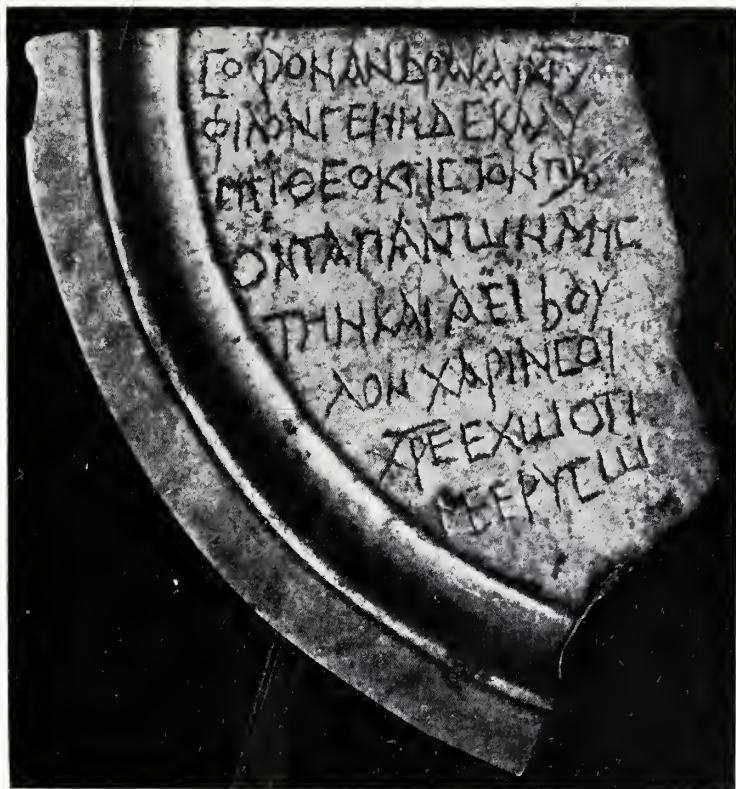 ϹΟΦΟΝΑΝΔΡΑΚΑΙΧΡΥ
ΦΙΛΟΝΓΕΝΗΔΕΚΑΛΥ
ΕΠΙΘΕΟΚΤΙϹΤΟΝ
ΟΝΤΑΠΑΝΤΩΝΑΗϹ
ΤΗΝΚΑΙΑΕΙΒΟΥ
ΛΟΝΧΑΡΙΝϹΟΙ
ΧΡΕΕΧΩΟΤΙ
ϹΕΕΡΥϹΩ